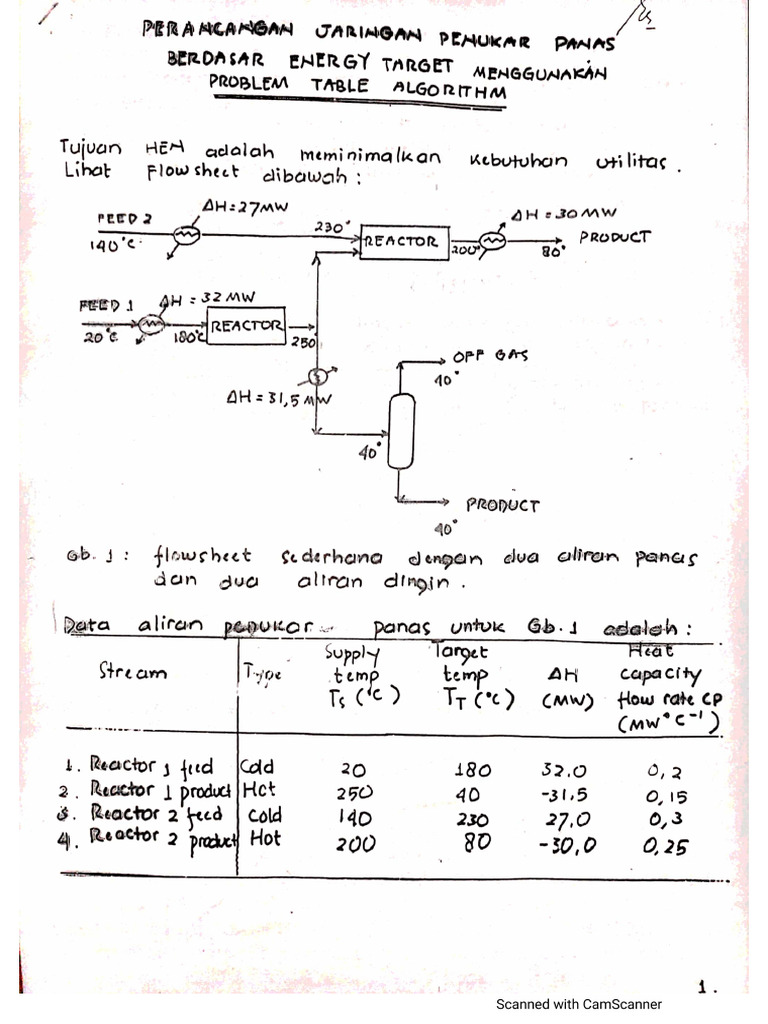 PERANCANGAN JARINGAN PENUKAR PANAS
BERDASAR ENERGY TARGET MENGGUNAKAN
PROBLEM TABLE ALGORITHM
Tujuan HEN adalah meminimalkan kebutuhan utilitas.
Lihat Flowsheet dibawah :
FEED 2
ΔH = 27 MW
140°C.
230°
REACTOR
200°
ΔH = 30 MW
80°
PRODUCT
FEED 1
ΔH = 32 MW
20°C
180°C
REACTOR
250°
ΔH = 31,5 MW
40°
OFF GAS
40°
PRODUCT
40°
Gb. 1 : flowsheet sederhana dengan dua aliran panas
dan dua aliran dingin.
Data aliran penukar panas untuk Gb. 1 adalah :
Stream Type Supply temp Ts (°C) Target temp TT (°C) ΔH (MW) Heat capacity flow rate CP (MW °C-1)
1. Reactor 1 feed Cold 20 180 32.0 0,2
2. Reactor 1 product Hot 250 40 -31,5 0,15
3. Reactor 2 feed Cold 140 230 27,0 0,3
4. Reactor 2 product Hot 200 80 -30,0 0,25
1.
Scanned with CamScanner